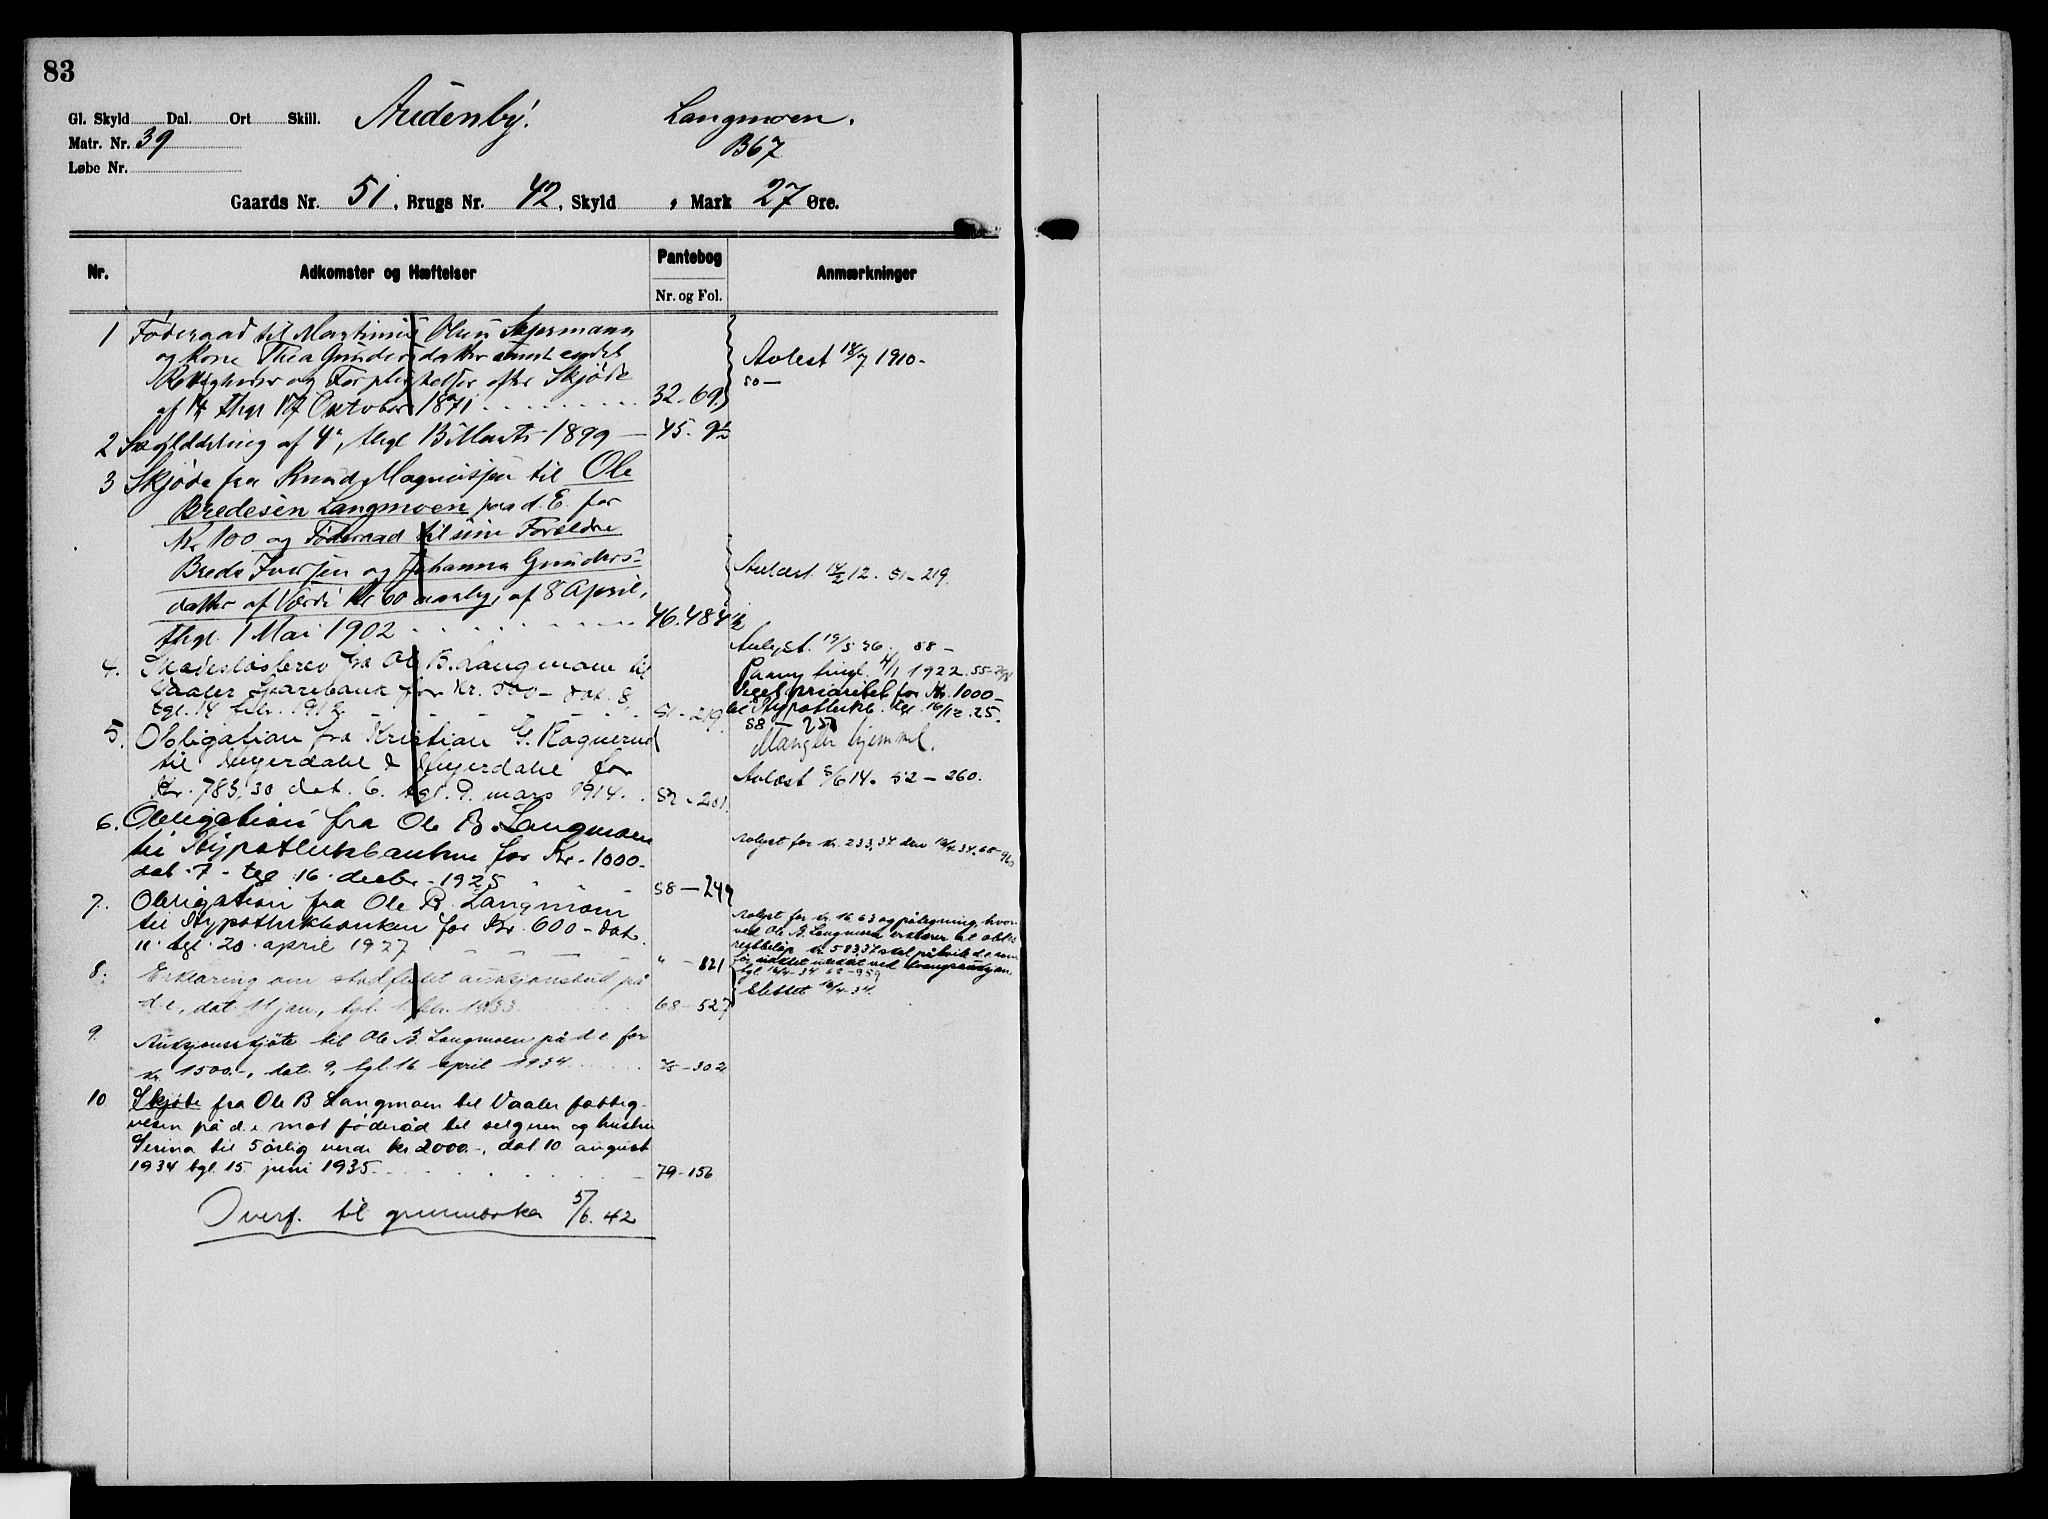 83
Gl. Skyld Dal. Ort Skill. Audenby. Langmoen.
Matr. Nr. 39 B67
Løbe Nr.
Gaards Nr. 51, Brugs Nr. 42, Skyld , Mark 27 Øre.
Nr. Adkomster og Hæftelser Pantebog Anmærkninger
Nr. og Fol.
1 Føderaad til Martinius Olsen
og Kone Thea Gundersdatter samt endel
Rettigheder og Forpligtelser efter Skjøde
af 14 thgl 17 October 1871 32-69
Avlest 18/7 1910-
50-
2 Skylddeling af 4, thgl Marts 1899 - 45.
3 Skjøde fra Knud Magnussen til Ole
Bredesen Langmoen paa d. E. for
Kr 100 og Føderaad til sine Forældre
Brede Iversen og Johanna Gunders-
datter af Værdi Kr 60 aarlig, af 8 April,
thgl. 1 Mai 1902 46.484
Avlæst. 14/2 12. 51-219.
4. Skadesløsbrev fra Ole B. Langmoen til
Vaaler Sparebank for Kr. 500- dat. 8,
tgl. 14 febr. 1912 51-219.
Avlyst. 19/5 26. 58-
Paany tingl. 4/1 1922. 55-
Veget prioritet for Kr. 1000-
til Hypothekb. tgl. 16/12. 25.
58-250
5. Obligation fra Kristian G. Kagnerud
til Mejerdahl & Mejerdahl for
Kr. 785,30 dat. 6. tgl. 9. mars 1914. 52-201.
Mangler hjemmel.
Avlæst 5/6 14. 52-260.
6. Obligation fra Ole B. Langmoen
til Hypothekbanken for Kr. 1000-
dat. 7- tgl. 16. decbr. 1925 58-249
Avlyst for kr. 233,34 den 16/4 34. 68-960
7. Obligation fra Ole B. Langmoen
til Hypothekbanken for Kr. 600- dat.
11. tgl. 20. april 1927 " -821
Avlyst for kr. 16 63 og påtegning, hvor-
ved Ole B. Langmoen erklærer at obl.s
restbeløp kr. 583,37 skal påhvile d.e. som
før uansett ved tvangsauksjon,
tgl. 16/4-34 68-959
8. Erklæring om stadfestet auksjonsbud på
d.e., dat. 11 jan., tgl. 1 febr. 1933 68-527
Slettet 16/4-34.
9. Auksjonsskjøte til Ole B. Langmoen på d.e. for
kr. 1500.-, dat. 9, tgl. 16 april 1934 -302
10 Skjøte fra Ole B Langmoen til Vaaler fattig-
vesen på d.e. mot føderåd til selgeren og hustru
Serina til 5 årlig verdi kr 2000.-, dat. 10 august
1934 tgl. 15. juni 1935. 79-156
Overf. til 5/6. 42